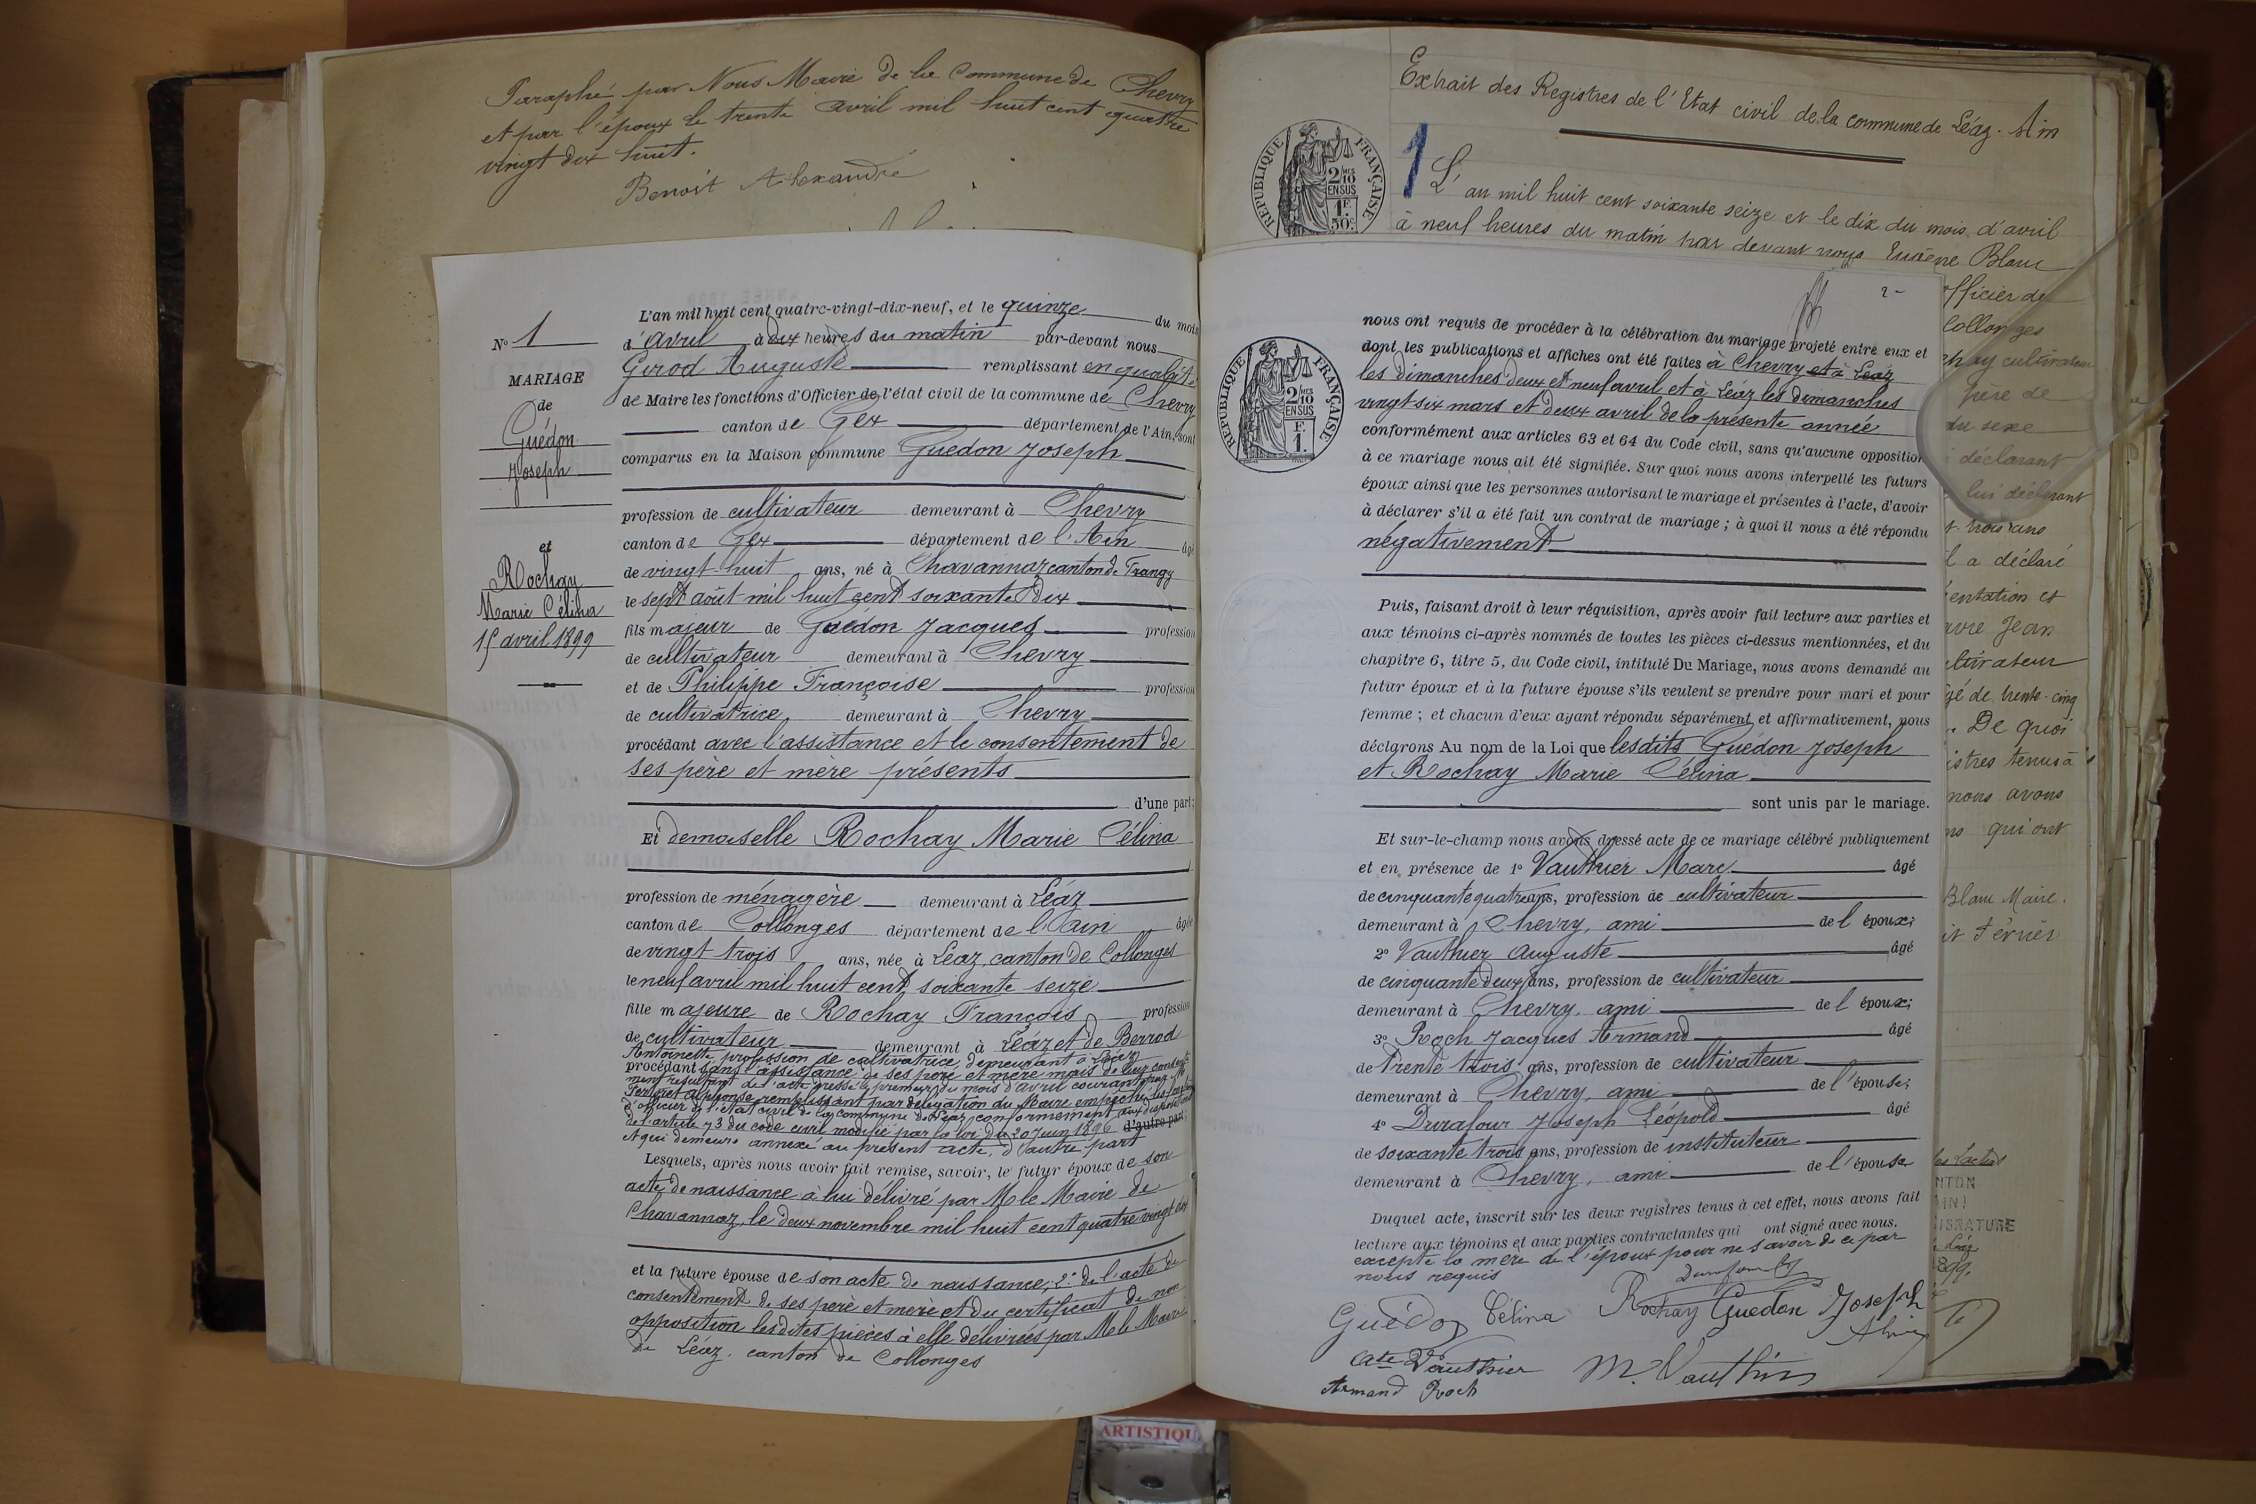 Paraphé par Nous Maire de la Commune de Chevry
et par l'époux le trente avril mil huit cent quatre
vingt dix huit.
Benoit Alexandre
L'an mil huit cent quatre-vingt-dix-neuf, et le quinze du mois
d'avril à dix heures du matin par-devant nous
Girod Auguste remplissant en qualité
de Maire les fonctions d'Officier de l'état civil de la commune de Chevry
canton de Gex département de l'Ain, sont
comparus en la Maison commune Guédon Joseph
N° 1
MARIAGE
de
Guédon
Joseph
et
Rochay
Marie Célina
15 avril 1899
profession de cultivateur demeurant à Chevry
canton de Gex département de l'Ain âgé
de vingt-huit ans, né à Chavannaz canton de Frangy
le sept août mil huit cent soixante dix
fils majeur de Guédon Jacques profession
de cultivateur demeurant à Chevry
et de Philippe Françoise profession
de cultivatrice demeurant à Chevry
procédant avec l'assistance et le consentement de
ses père et mère présents
d'une part;
Et demoiselle Rochay Marie Célina
profession de ménagère demeurant à Léaz
canton de Collonges département de l'Ain âgée
de vingt trois ans, née à Léaz, canton de Collonges
le neuf avril mil huit cent soixante seize
fille majeure de Rochay François profession
de cultivateur demeurant à Léaz et de Berrod
Antoinette profession de cultivatrice, demeurant à Léaz
procédant sans l'assistance de ses père et mère mais de leur consente
ment résultant de l'acte dressé le premier du mois d'avril courant par
Perréet Alphonse remplissant par délégation du Maire empêché les
d'officier de l'état civil de la commune de Léaz, conformément aux dispositions
de l'article 73 du code civil modifié par la loi du 20 Juin 1896 d'autre part;
et qui demeure annexé au présent acte, d'autre part
Lesquels, après nous avoir fait remise, savoir, le futur époux de son
acte de naissance à lui délivré par M le Maire de
Chavannaz, le deux novembre mil huit cent quatre vingt dix
et la future épouse de son acte de naissance; 2° de l'acte de
consentement de ses père et mère et du certificat de non
opposition lesdites pièces à elle délivrées par M le Maire
de Léaz, canton de Collonges
Extrait des Registres de l'Etat civil de la commune de Léaz. Ain
RÉPUBLIQUE FRANÇAISE
2/10 EN SUS
1F 50c
1
L'an mil huit cent soixante seize et le dix du mois d'avril
à neuf heures du matin par devant nous Eugène Blanc
2
nous ont requis de procéder à la célébration du mariage projeté entre eux et
dont les publications et affiches ont été faites à Chevry et à Léaz
les dimanches deux et neuf avril et à Léaz les dimanches
vingt-six mars et deux avril de la présente année
RÉPUBLIQUE FRANÇAISE
2/10 EN SUS
1F
conformément aux articles 63 et 64 du Code civil, sans qu'aucune opposition
à ce mariage nous ait été signifiée. Sur quoi nous avons interpellé les futurs
époux ainsi que les personnes autorisant le mariage et présentes à l'acte, d'avoir
à déclarer s'il a été fait un contrat de mariage; à quoi il nous a été répondu
négativement
Puis, faisant droit à leur réquisition, après avoir fait lecture aux parties et
aux témoins ci-après nommés de toutes les pièces ci-dessus mentionnées, et du
chapitre 6, titre 5, du Code civil, intitulé Du Mariage, nous avons demandé au
futur époux et à la future épouse s'ils veulent se prendre pour mari et pour
femme; et chacun d'eux ayant répondu séparément et affirmativement, nous
déclarons Au nom de la Loi que lesdits Guédon Joseph
et Rochay Marie Célina
sont unis par le mariage.
Et sur-le-champ nous avons dressé acte de ce mariage célébré publiquement
et en présence de 1° Vauthier Marc âgé
de cinquante quatre ans, profession de cultivateur
demeurant à Chevry, ami de l'époux;
2° Vauthier Auguste âgé
de cinquante deux ans, profession de cultivateur
demeurant à Chevry, ami de l'époux;
3° Roch Jacques Armand âgé
de trente trois ans, profession de cultivateur
demeurant à Chevry, ami de l'épouse;
4° Durafour Joseph Léopold âgé
de soixante trois ans, profession de instituteur
demeurant à Chevry, ami de l'épouse
Duquel acte, inscrit sur les deux registres tenus à cet effet, nous avons fait
lecture aux témoins et aux parties contractantes qui ont signé avec nous.
excepté la mère de l'époux pour ne savoir de ce par
nous requis
Durafour
Guédon Célina Rochay Guedon Joseph
Vauthier M. Vauthier
Armand Roch
officier de
Collonges
chay cultivateur
père de
du sexe
déclarant
lui déclarant
t trois ans
il a déclaré
entation et
avre Jean
ltivateur
gé de trente-cinq
. De quoi
istres tenus à
nous avons
ns qui ont
Blanc Maire.
it Février
NTON
AIN)
ISTRATURE
Léaz
899.
ARTISTIQU